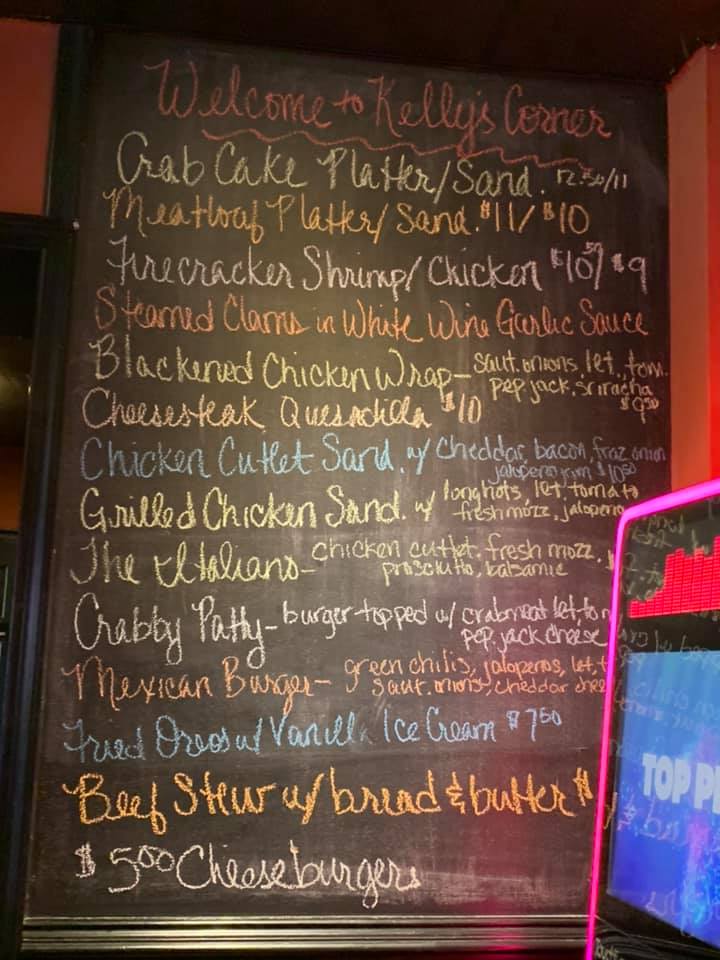 Welcome to Kelly's Corner
Crab Cake Platter/Sand. 12.50/11
Meatloaf Platter/Sand. $11/$10
Firecracker Shrimp/Chicken $10.50/$9
Steamed Clams in White Wine Garlic Sauce
Blackened Chicken Wrap - saut. onions, let., tom.
pep jack, sriracha
$9.50
Cheesesteak Quesadilla $10
Chicken Cutlet Sand. w/ cheddar, bacon, fraz onion
jalapeno $10.50
Grilled Chicken Sand. w/ longhots, let, tomato
fresh mozz, jalapeno
The Italiano - chicken cutlet, fresh mozz,
prosciutto, balsamic
Crabby Patty - burger topped w/ crabmeat let, tom
pep. jack cheese
Mexican Burger - green chilis, jalapenos, let, t
saut. onions, cheddar chee
Fried Oreos w/ Vanilla Ice Cream $7.50
Beef Stew w/ bread & butter $
$5.00 Cheeseburgers
TOP P